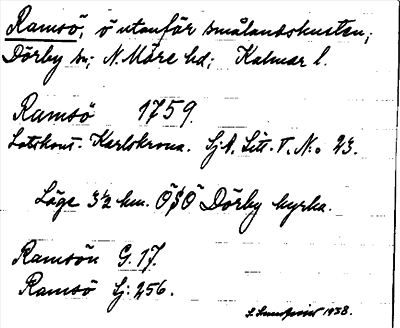 Ramsö, ö utanför smålandskusten;
Dörby sn; N. Möre hd; Kalmar l.
Ramsö 1759.
Lotskont. Karlskrona. Sj.k. Litt. T. No 23.
Läge 3½ km. ÖSÖ Dörby kyrka.
Ramsön G. 17.
Ramsö Sj: 256.
1938.